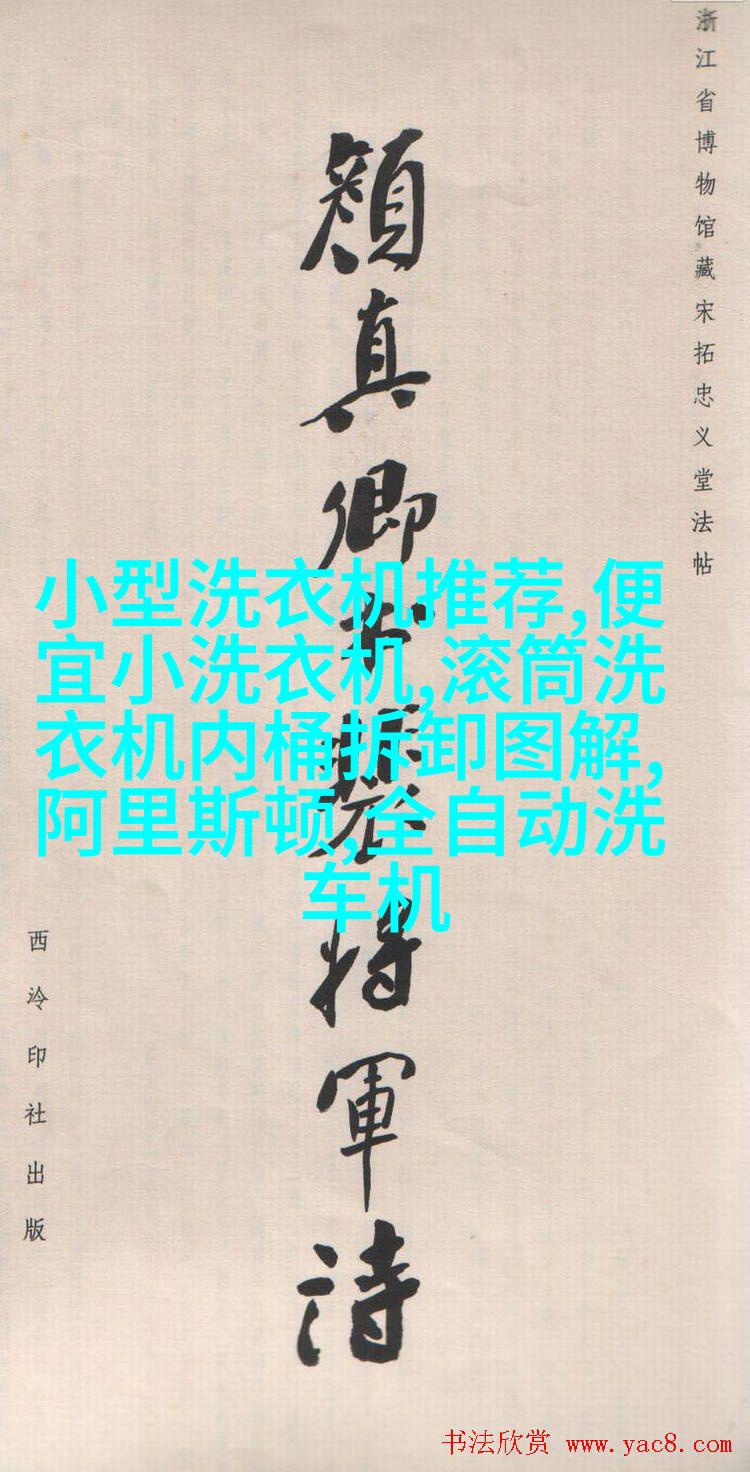 浙江省博物馆藏宋拓忠义堂法帖
顔真卿
将軍詩
小型洗衣机推荐,便
宜小洗衣机,滚筒洗
衣机内桶拆卸图解,
阿里斯顿,全自动洗
车机
西泠印社出版
书法欣赏 www.yac8.com